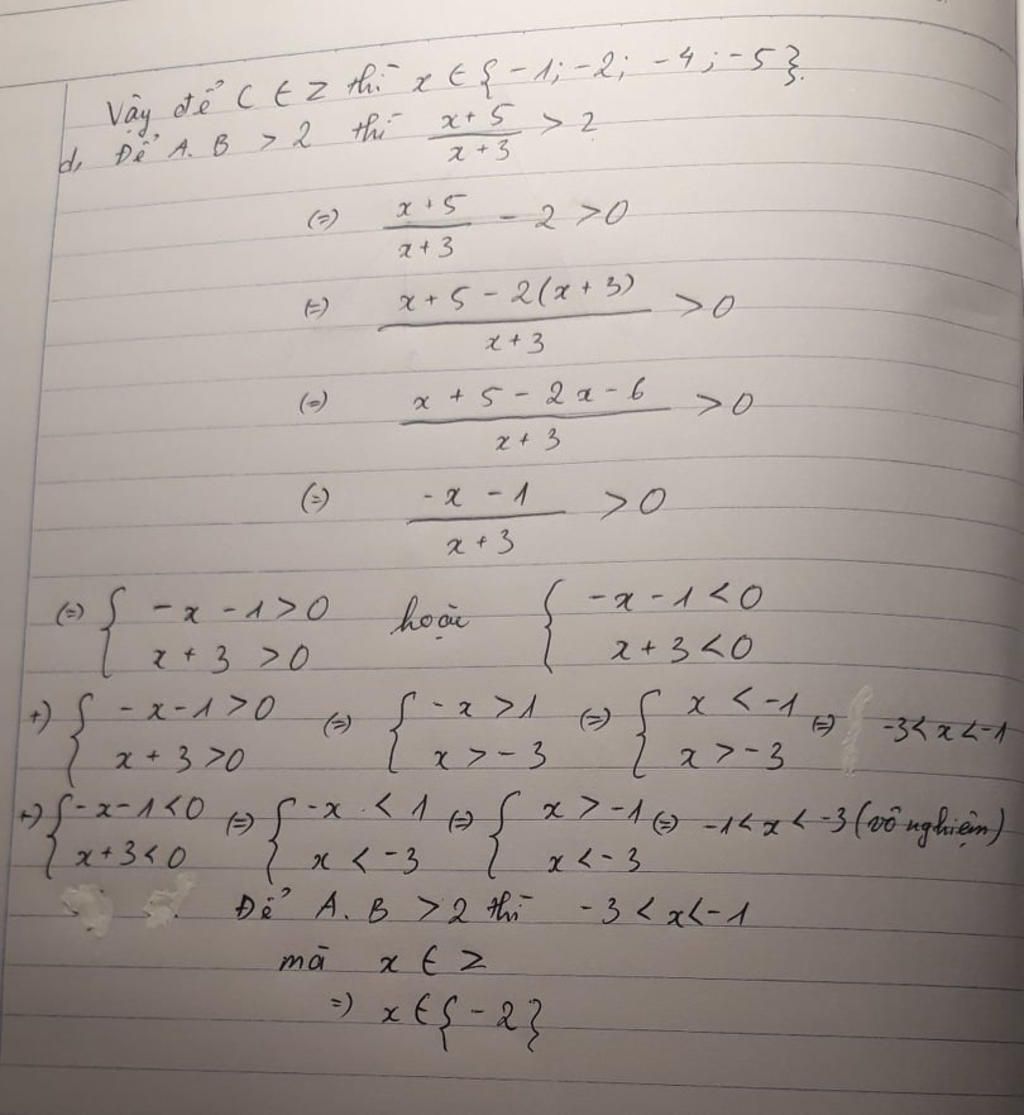 Vậy để C ∈ Z thì x ∈ {-1; -2; -4; -5}.
d, Để A. B > 2 thì (x + 5)/(x + 3) > 2
(=) (x + 5)/(x + 3) - 2 > 0
(=) (x + 5 - 2(x + 3))/(x + 3) > 0
(=) (x + 5 - 2x - 6)/(x + 3) > 0
(=) (-x - 1)/(x + 3) > 0
(=) { -x - 1 > 0 ; x + 3 > 0 hoặc { -x - 1 < 0 ; x + 3 < 0
+) { -x - 1 > 0 ; x + 3 > 0 (=) { -x > 1 ; x > -3 (=) { x < -1 ; x > -3 (=) -3 < x < -1
+) { -x - 1 < 0 ; x + 3 < 0 (=) { -x < 1 ; x < -3 (=) { x > -1 ; x < -3 (=) -1 < x < -3 (vô nghiệm)
Để A. B > 2 thì -3 < x < -1
mà x ∈ Z
=) x ∈ {-2}